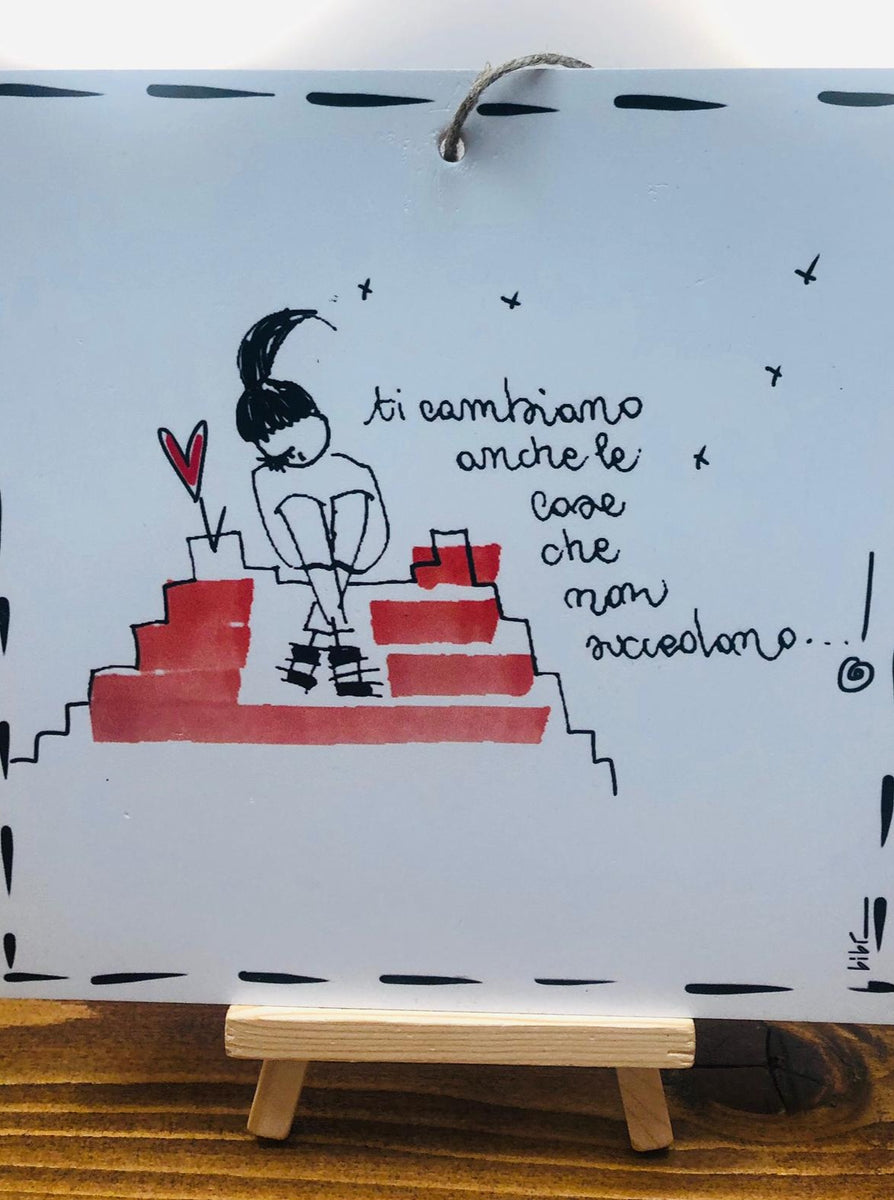 ti cambiano
anche le
cose
che
non
succedono...!
bibi